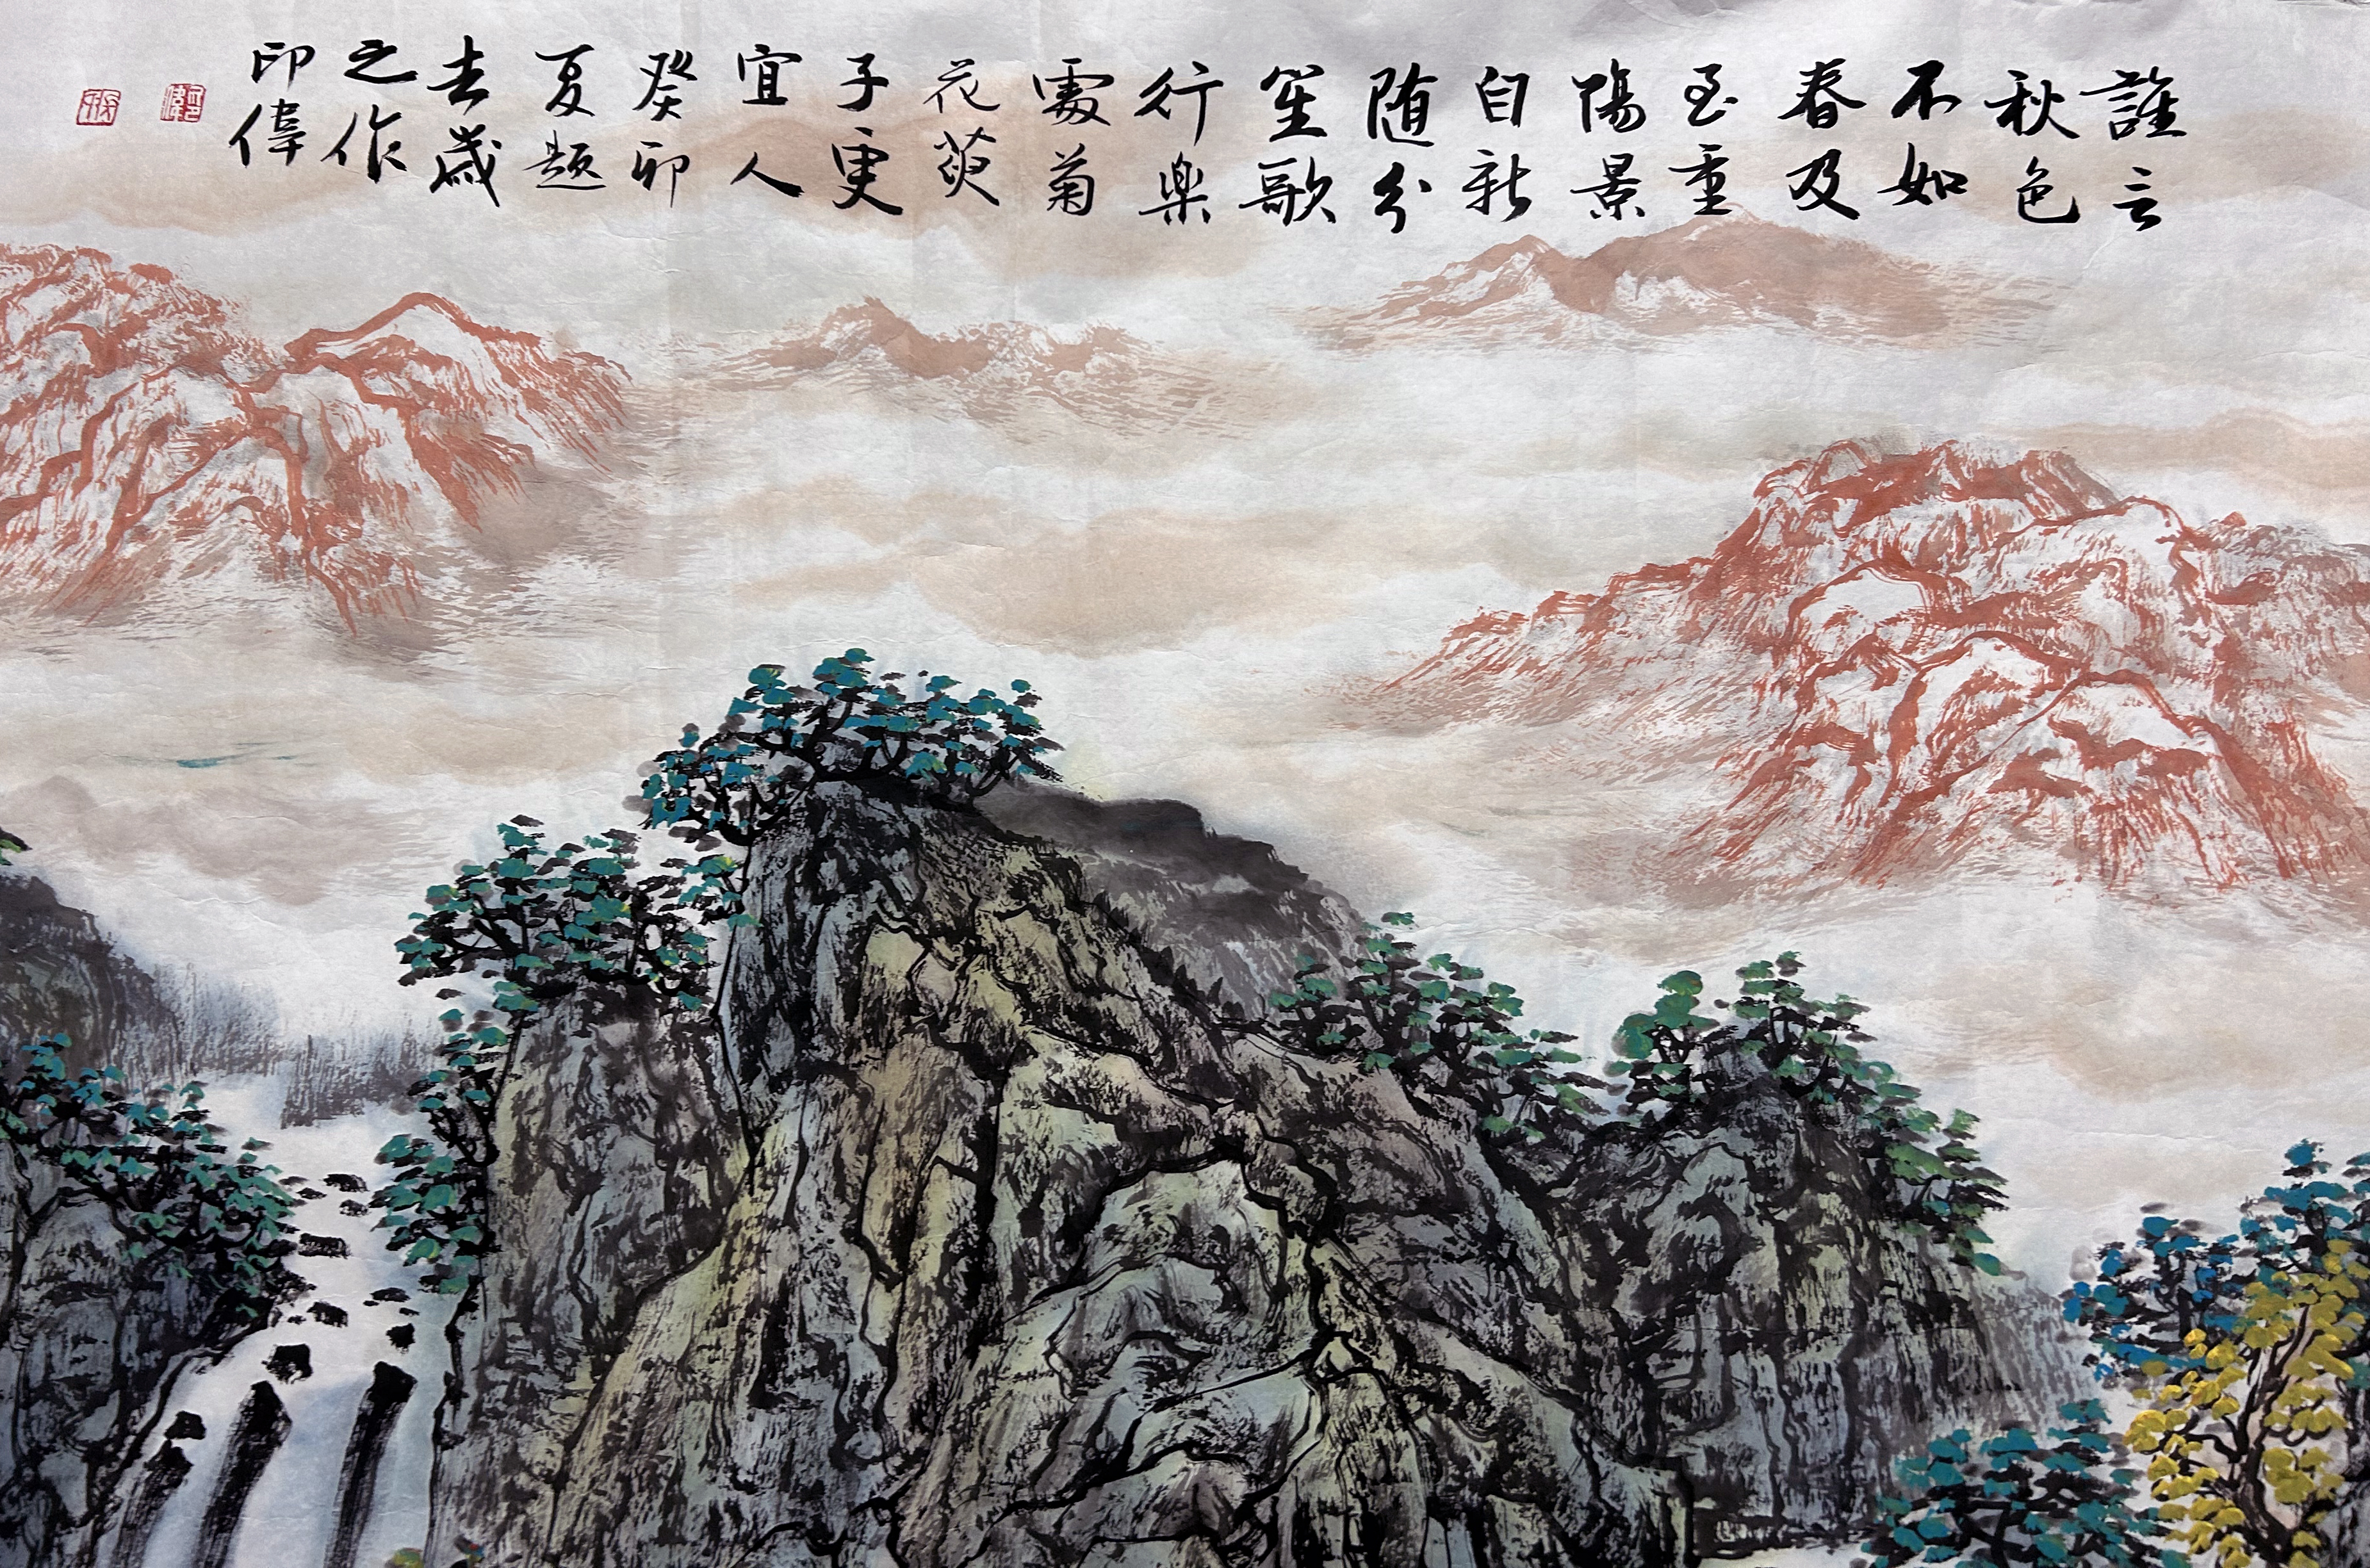 誰言
秋色
不如
春及
至重
陽景
自新
随分
笙歌
行楽
處菊
花萸
子更
宜人
癸卯
夏题
去歳
之作
印偉
印偉